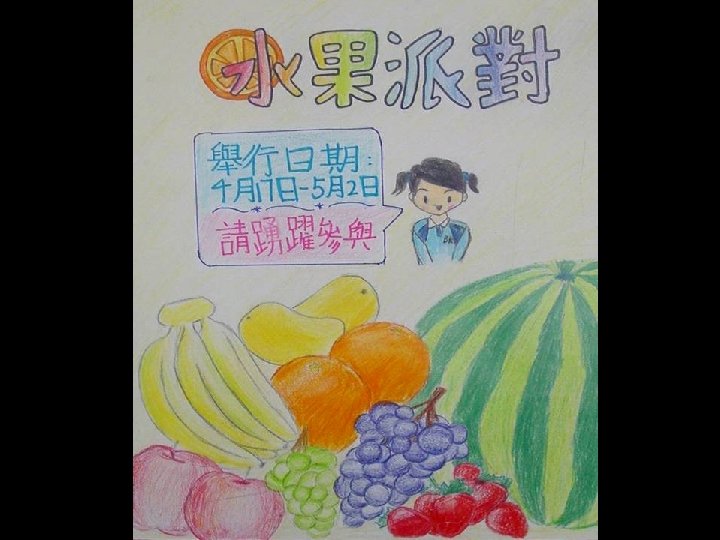 水果派對
舉行日期:
4月17日-5月2日
請踴躍參與